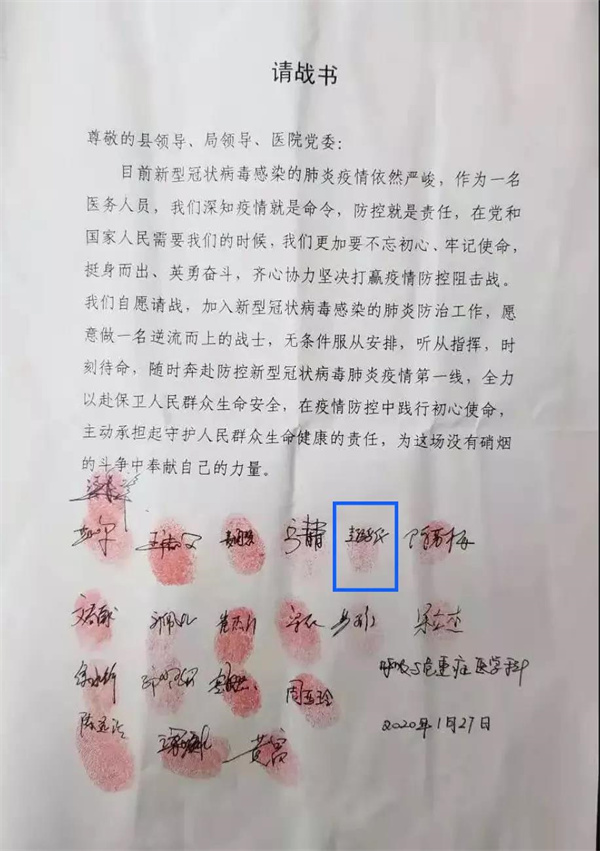 请战书
尊敬的县领导、局领导、医院党委：
目前新型冠状病毒感染的肺炎疫情依然严峻，作为一名
医务人员，我们深知疫情就是命令，防控就是责任，在党和
国家人民需要我们的时候，我们更加要不忘初心、牢记使命，
挺身而出、英勇奋斗，齐心协力坚决打赢疫情防控阻击战。
我们自愿请战，加入新型冠状病毒感染的肺炎防治工作，愿
意做一名逆流而上的战士，无条件服从安排，听从指挥，时
刻待命，随时奔赴防控新型冠状病毒肺炎疫情第一线，全力
以赴保卫人民群众生命安全，在疫情防控中践行初心使命，
主动承担起守护人民群众生命健康的责任，为这场没有硝烟
的斗争中奉献自己的力量。
呼吸与危重症医学科
周亚玲
2020年1月27日
黄富